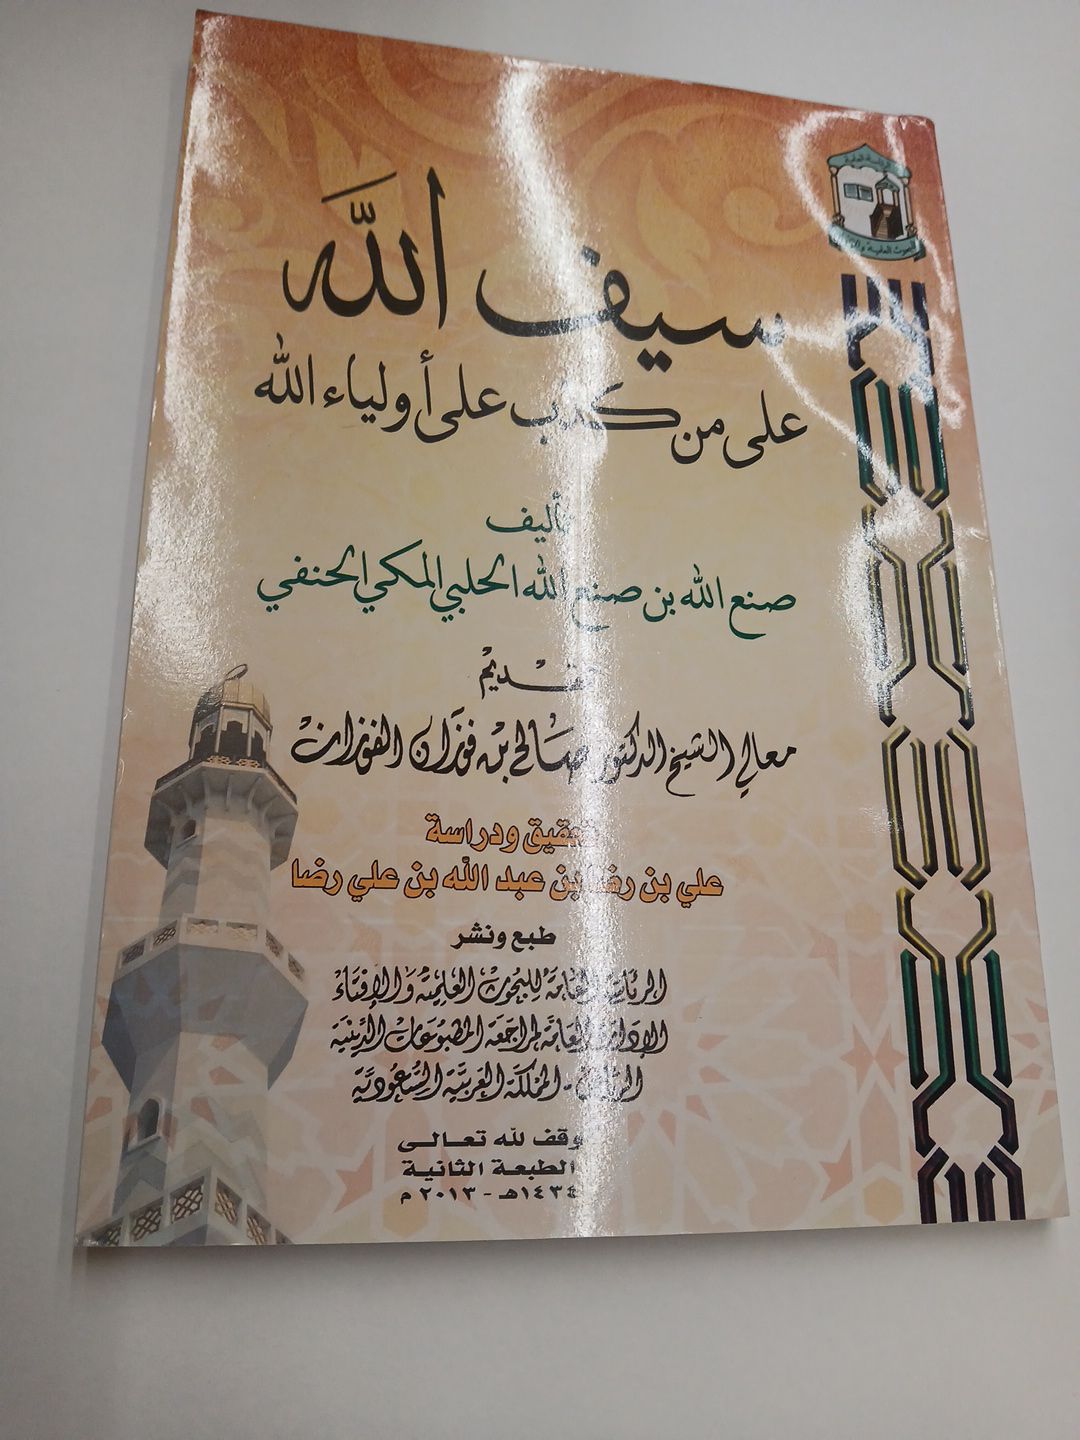 سيف الله
على من كذب على أولياء الله
تأليف
صنع الله بن صنع الله الحلبي المكي الحنفي
تقديم
معالي الشيخ الدكتور صالح بن فوزان الفوزان
تحقيق ودراسة
علي بن رضا بن عبد الله بن علي رضا
طبع ونشر
الرئاسة العامة للبحوث العلمية والإفتاء
الإدارة العامة لمراجعة المطبوعات الدينية
الرياض - المملكة العربية السعودية
وقف لله تعالى
الطبعة الثانية
١٤٣٤هـ - ٢٠١٣ م